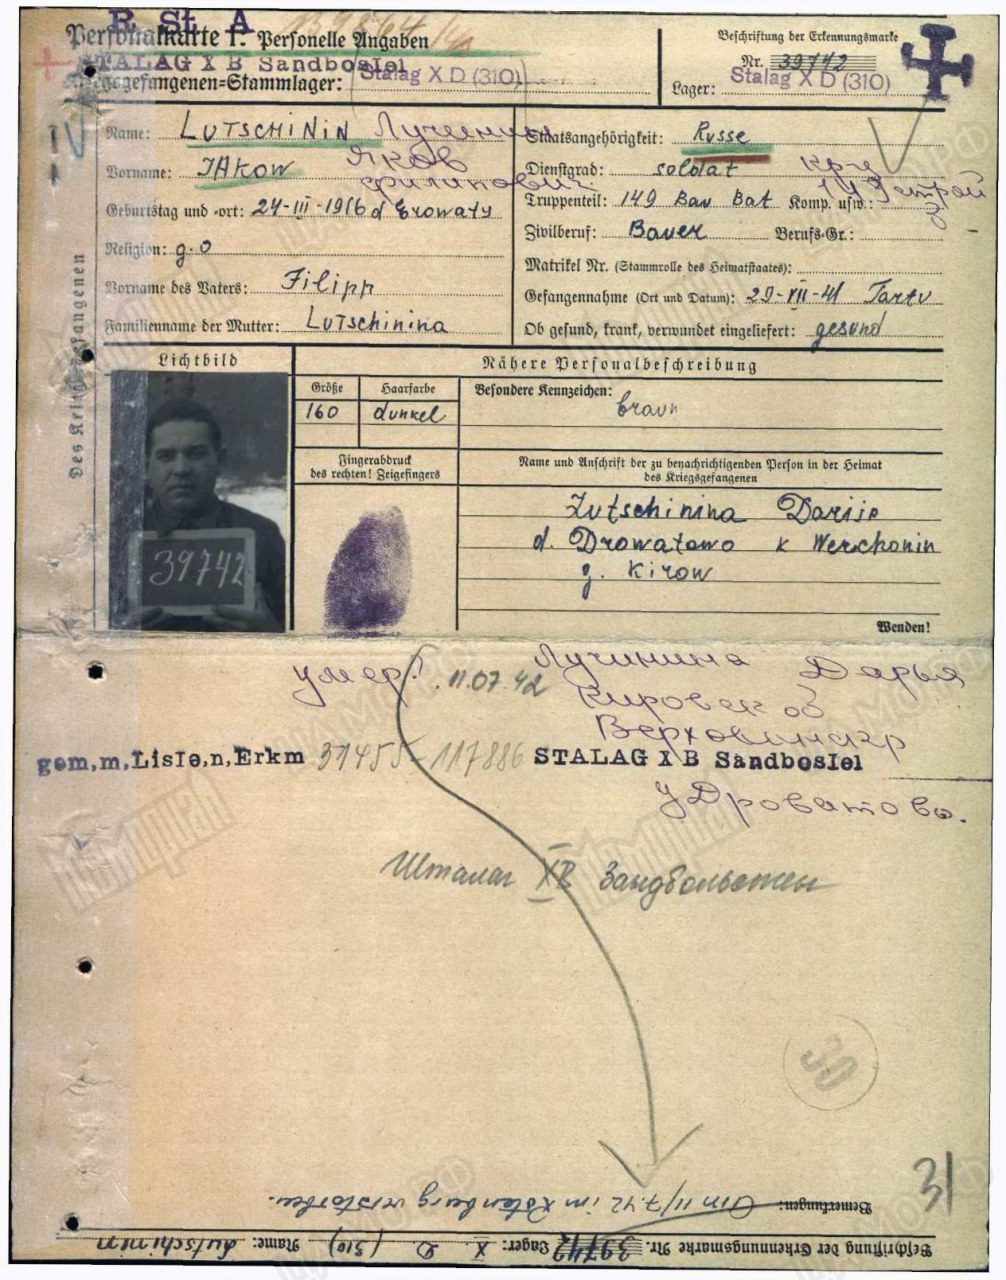 R. St. A
Personalkarte I: Personelle Angaben
STALAG X B Sandbostel
Kriegsgefangenen=Stammlager: Stalag X D (310)
Beschriftung der Erkennungsmarke
Nr. 39742
Lager: Stalag X D (310)
Des Kriegsgefangenen
Name: LUTSCHININ Лучинин
Vorname: JAKOW Яков
Филипович
Geburtstag und =ort: 24-III-1916 d
Religion: g.o
Vorname des Vaters: Filipp
Familienname der Mutter: Lutschinina
Staatsangehörigkeit: Russe
Dienstgrad: soldat
Truppenteil: 149 Bau Bat Komp. usw.:
Zivilberuf: Bauer Berufs=Gr.:
Matrikel Nr. (Stammrolle des Heimatstaates):
Gefangennahme (Ort und Datum): 20-VII-41 Tartu
Ob gesund, krank, verwundet eingeliefert: gesund
Lichtbild
Nähere Personalbeschreibung
Größe Haarfarbe Besondere Kennzeichen:
160 dunkel braun
39742
Fingerabdruck
des rechten! Zeigefingers
Name und Anschrift der zu benachrichtigenden Person in der Heimat
des Kriegsgefangenen
Lutschinina Darije
d. Drowatowo k Werchonin
g. Kirow
Wenden!
умер 11.07.42
Лучинина Дарья
Кировск об
Верховинскгр
gem,m,Liste,n,Erkm 31455-117886 STALAG X B Sandbostel
у Дроватово.
Шталаг XB Зандбольстен
30
31
Bemerkungen: Am 11/7.42 im Rotenburg verstorben.
Beschriftung der Erkennungsmarke Nr. 39742 Lager: X D (310) Name: Lutschinin